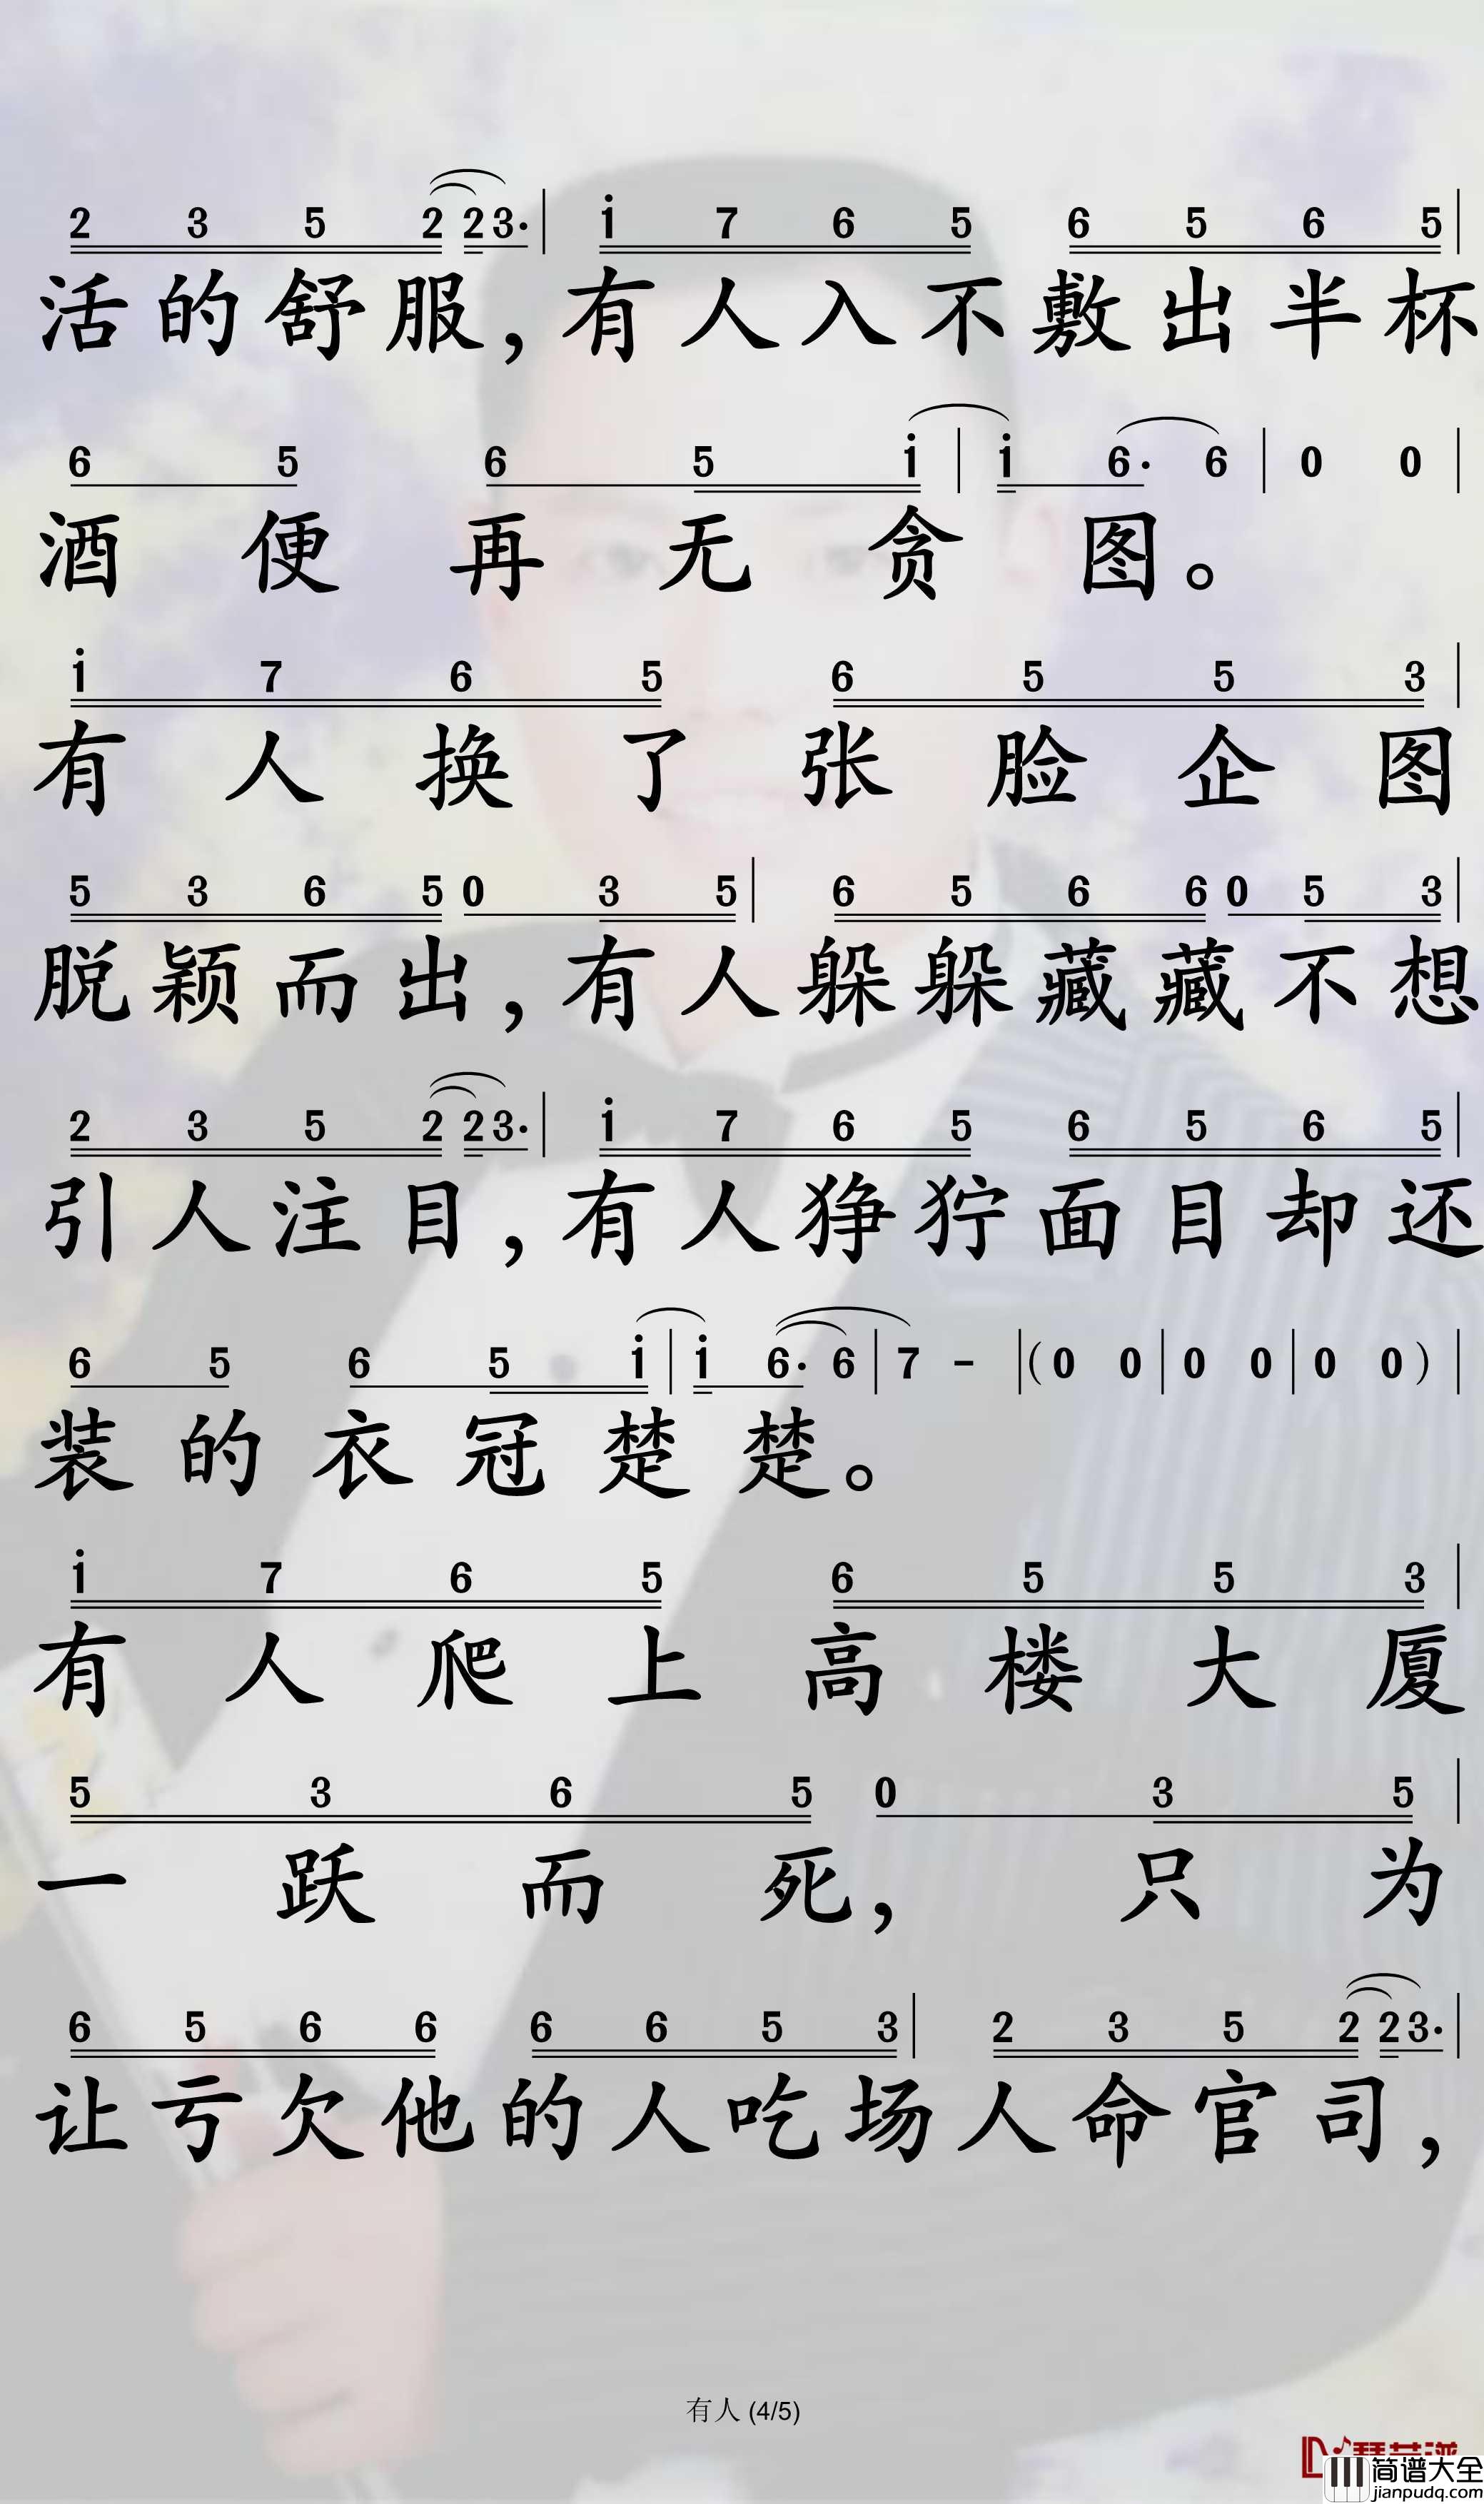 2 3 5 2 2 3· | i 7 6 5 6 5 6 5 |
活的舒服，有人入不敷出半杯
6 5 6 5 i | i 6· 6 | 0 0 |
酒便再无贪图。
i 7 6 5 6 5 5 3 |
有人换了张脸企图
5 3 6 5 0 3 5 | 6 5 6 6 0 5 3 |
脱颖而出，有人躲躲藏藏不想
2 3 5 2 2 3· | i 7 6 5 6 5 6 5 |
引人注目，有人狰狞面目却还
6 5 6 5 i | i 6· 6 | 7 - | (0 0 | 0 0 | 0 0) |
装的衣冠楚楚。
i 7 6 5 6 5 5 3 |
有人爬上高楼大厦
5 3 6 5 0 3 5 |
一跃而死，只为
6 5 6 6 6 6 5 3 | 2 3 5 2 2 3· |
让亏欠他的人吃场人命官司，
有人 (4/5)
简谱大全
jianpudq.com